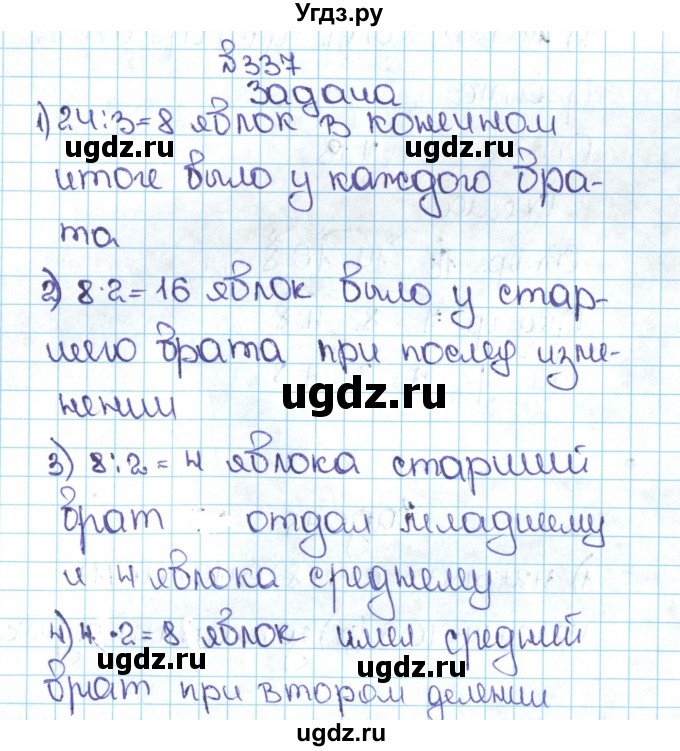 Угдз.ру
№337
Задача
1) 24:3=8 яблок в конечном
ugdz.ru ugdz.ru
итоге было у каждого бра-
та
2) 8·2=16 яблок было у стар-
шего брата при послед изме-
ugdz.ru
нении
3) 8:2=4 яблока старший
брат отдал младшему
и 4 яблока среднему
4) 4·2=8 яблок имел средний
ugdz.ru ugdz.ru
брат при втором делении
ugdz.ru